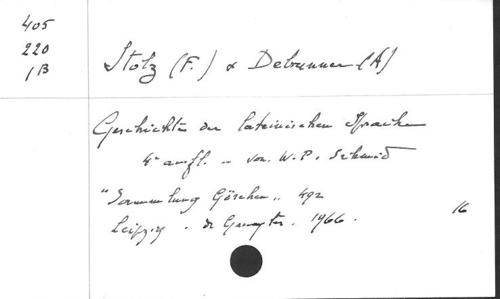 405
220
1B
Stolz (F.) & Debrunner (A)
Geschichte der lateinischen Sprache
4e aufl. - von W.P. Schmid
"Sammlung Göschen" 492
Leipzig . de Gruyter . 1966.
16